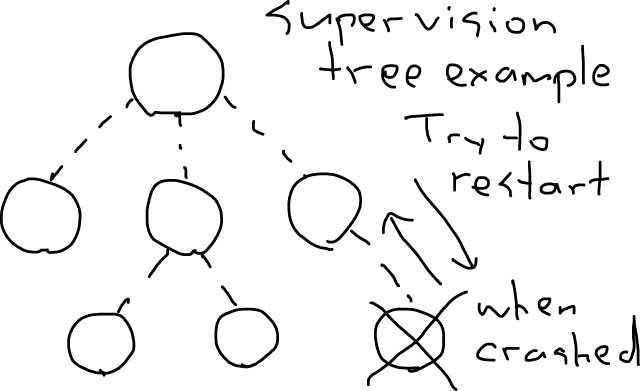 Supervision
tree example
Try to
restart
when
crashed